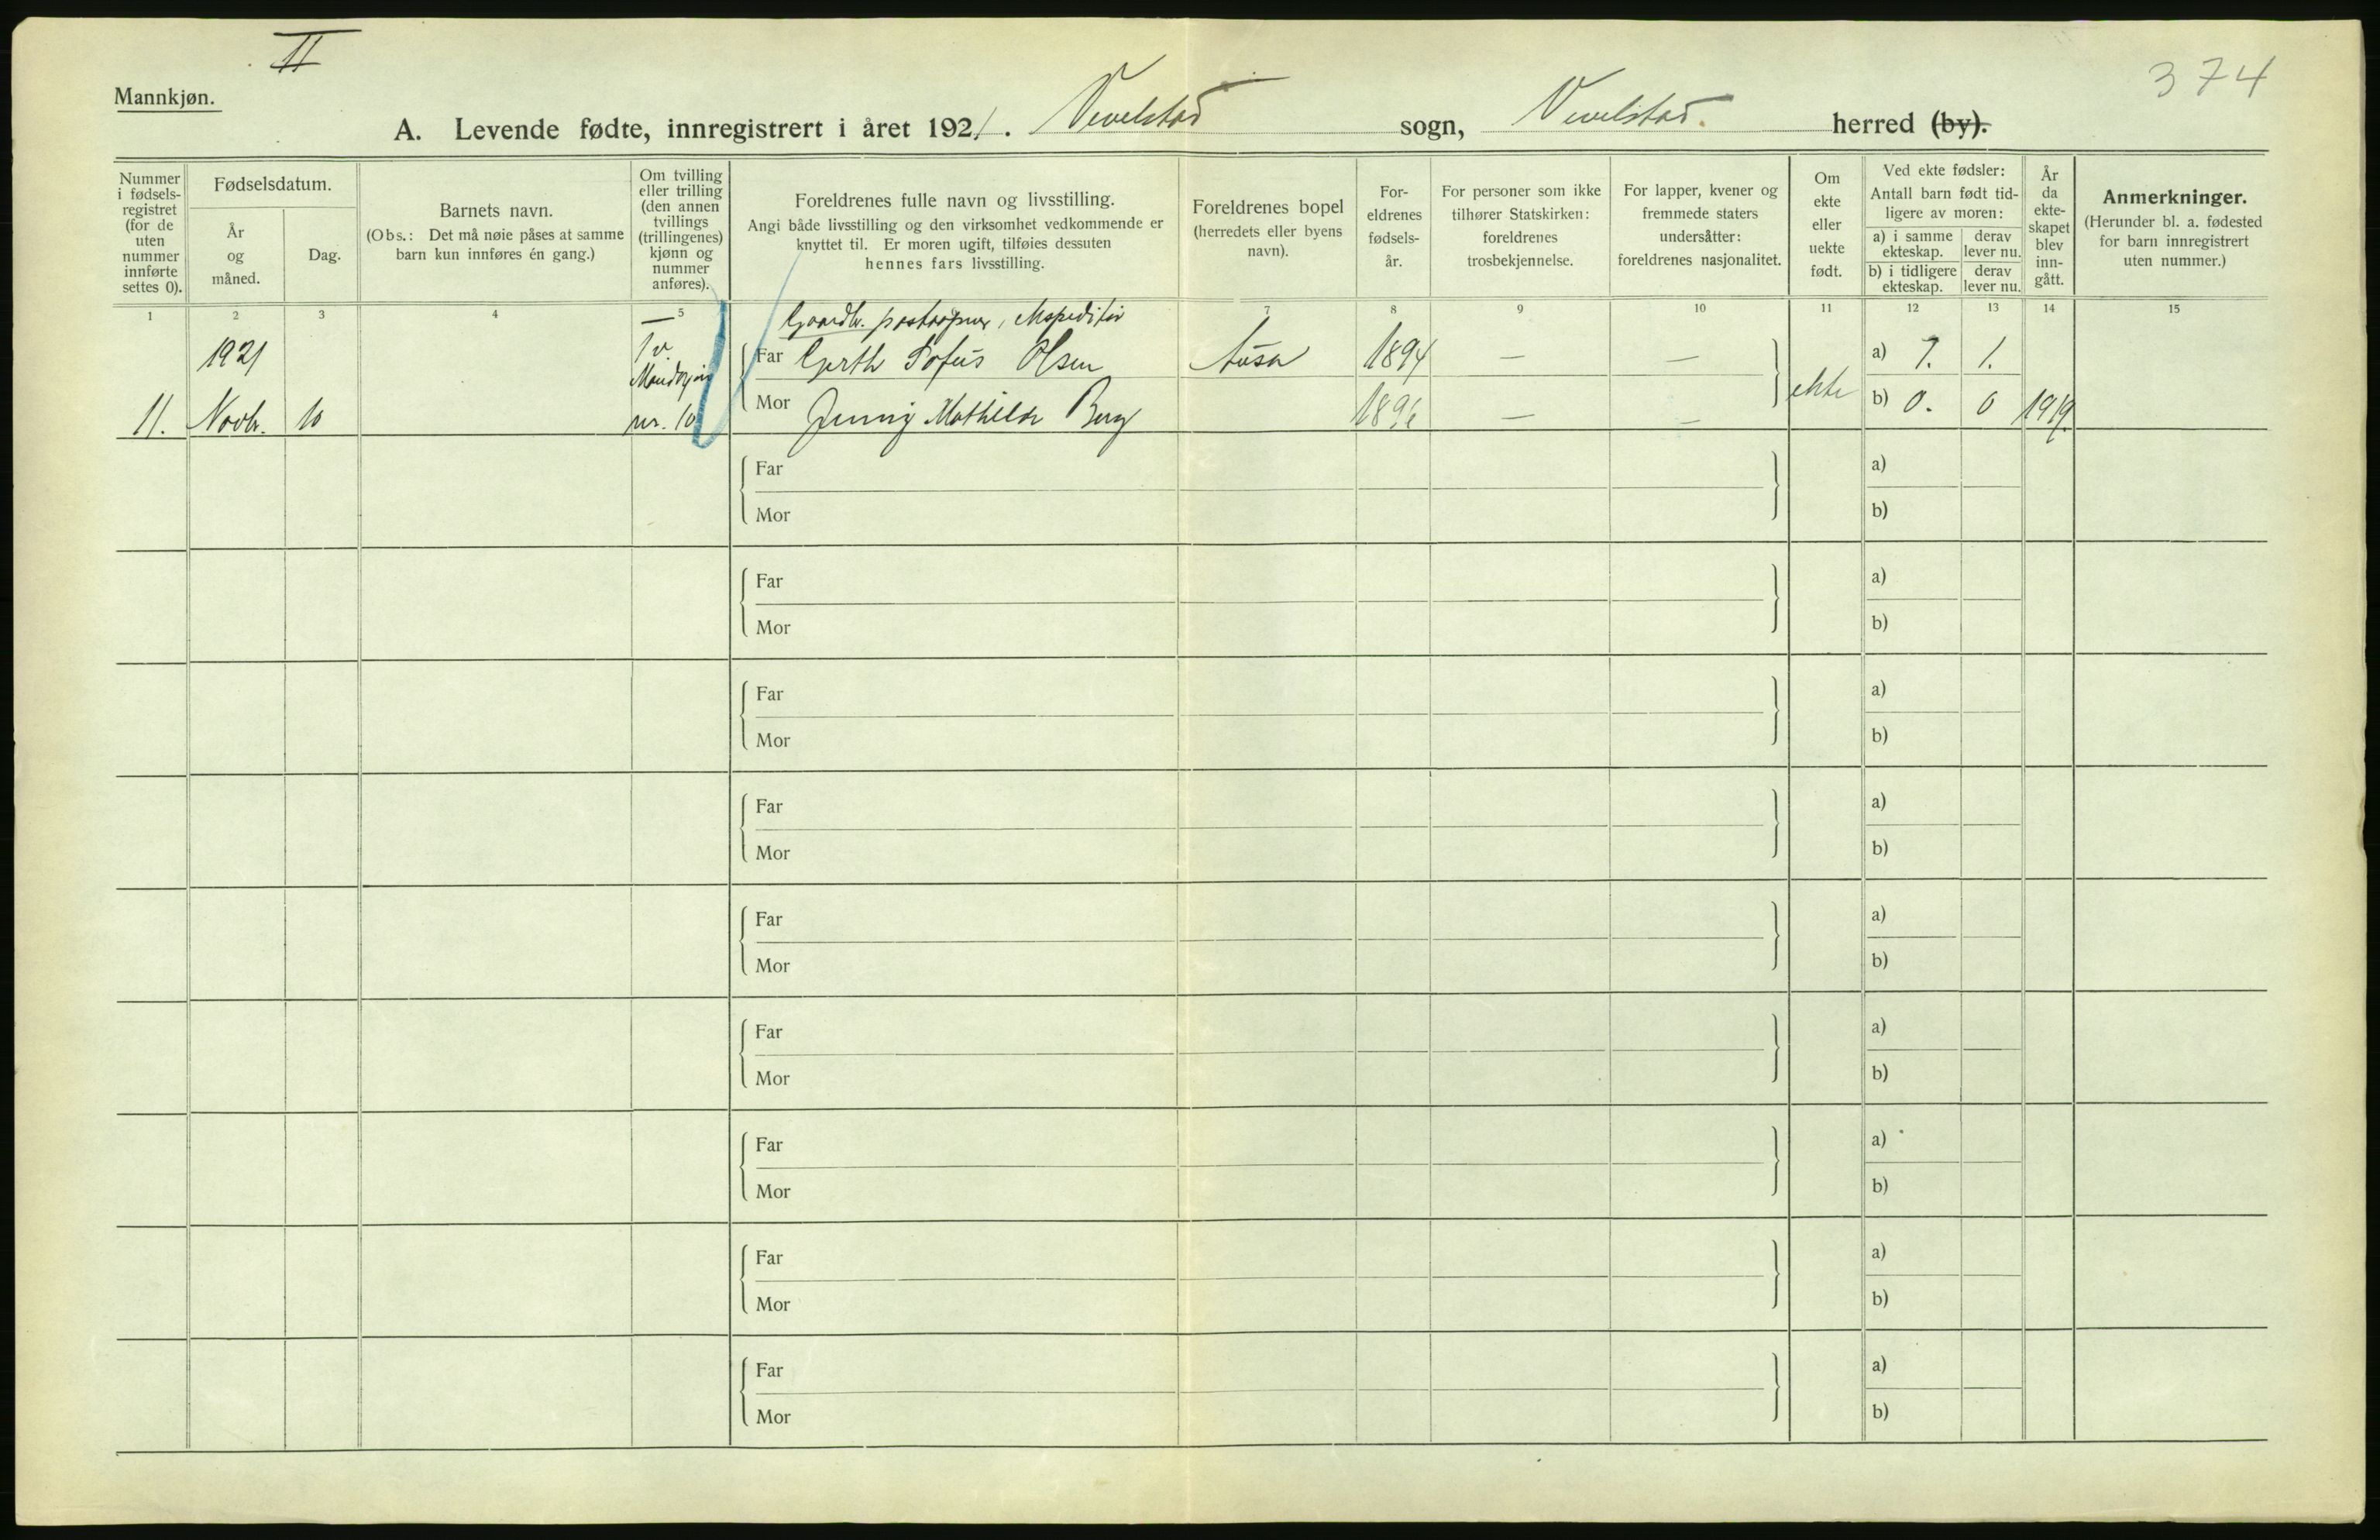 II
374
Mannkjøn.
A. Levende fødte, innregistrert i året 1921. Vevelstad sogn, Vevelstad. herred (by).
Nummer
i fødsels-
registret
(for de
uten
nummer
innførte
settes 0).
Fødselsdatum.
År
og
måned.
Dag.
Barnets navn.
(Obs.: Det må nøie påses at samme
barn kun innføres én gang.)
Om tvilling
eller trilling
(den annen
tvillings
(trillingenes)
kjønn og
nummer
anføres).
Foreldrenes fulle navn og livsstilling.
Angi både livsstilling og den virksomhet vedkommende er
knyttet til. Er moren ugift, tilføies dessuten
hennes fars livsstilling.
Foreldrenes bopel
(herredets eller byens
navn).
For-
eldrenes
fødsels-
år.
For personer som ikke
tilhører Statskirken:
foreldrenes
trosbekjennelse.
For lapper, kvener og
fremmede staters
undersåtter:
foreldrenes nasjonalitet.
Om
ekte
eller
uekte
født.
Ved ekte fødsler:
Antall barn født tid-
ligere av moren:
a) i samme
ekteskap.
derav
lever nu.
b) i tidligere
ekteskap.
derav
lever nu.
År
da
ekte-
skapet
blev
inn-
gått.
Anmerkninger.
(Herunder bl. a. fødested
for barn innregistrert
uten nummer.)
1 2 3 4 5 7 8 9 10 11 12 13 14 15
Gaardbr. postaapner, Expeditør
1921 Tv. Far Gerth Sofus Olsen Ausa 1894 — — a) 1.
Mandkjøn
11. Novbr. 10 nr. 10 Mor Jenny Mathilde Berg — — ekte b) 0. 0 1919.
Far a)
Mor b)
Far a)
Mor b)
Far a)
Mor b)
Far a)
Mor b)
Far a)
Mor b)
Far a)
Mor b)
Far a)
Mor b)
Far a)
Mor b)
Far a)
Mor b)